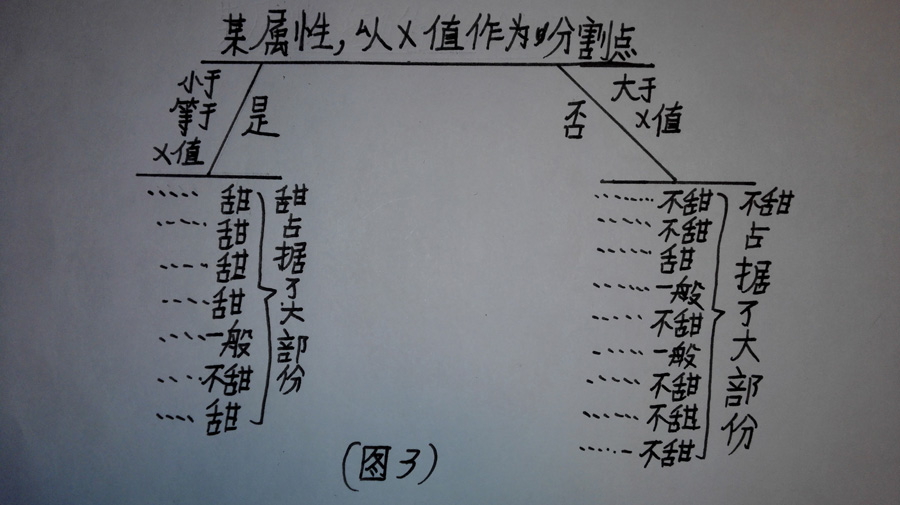 某属性，以X值作为分割点
小于
等于
X值
是
否
大于
X值
····· 甜
····· 甜
···· 甜
····· 甜
·····一般
····不甜
···· 甜
甜占据了大部份
·······不甜
······ 不甜
······ 甜
······ 一般
······ 不甜
····· 一般
····· 不甜
······ 不甜
······ 不甜
不甜占据了大部份
(图3)